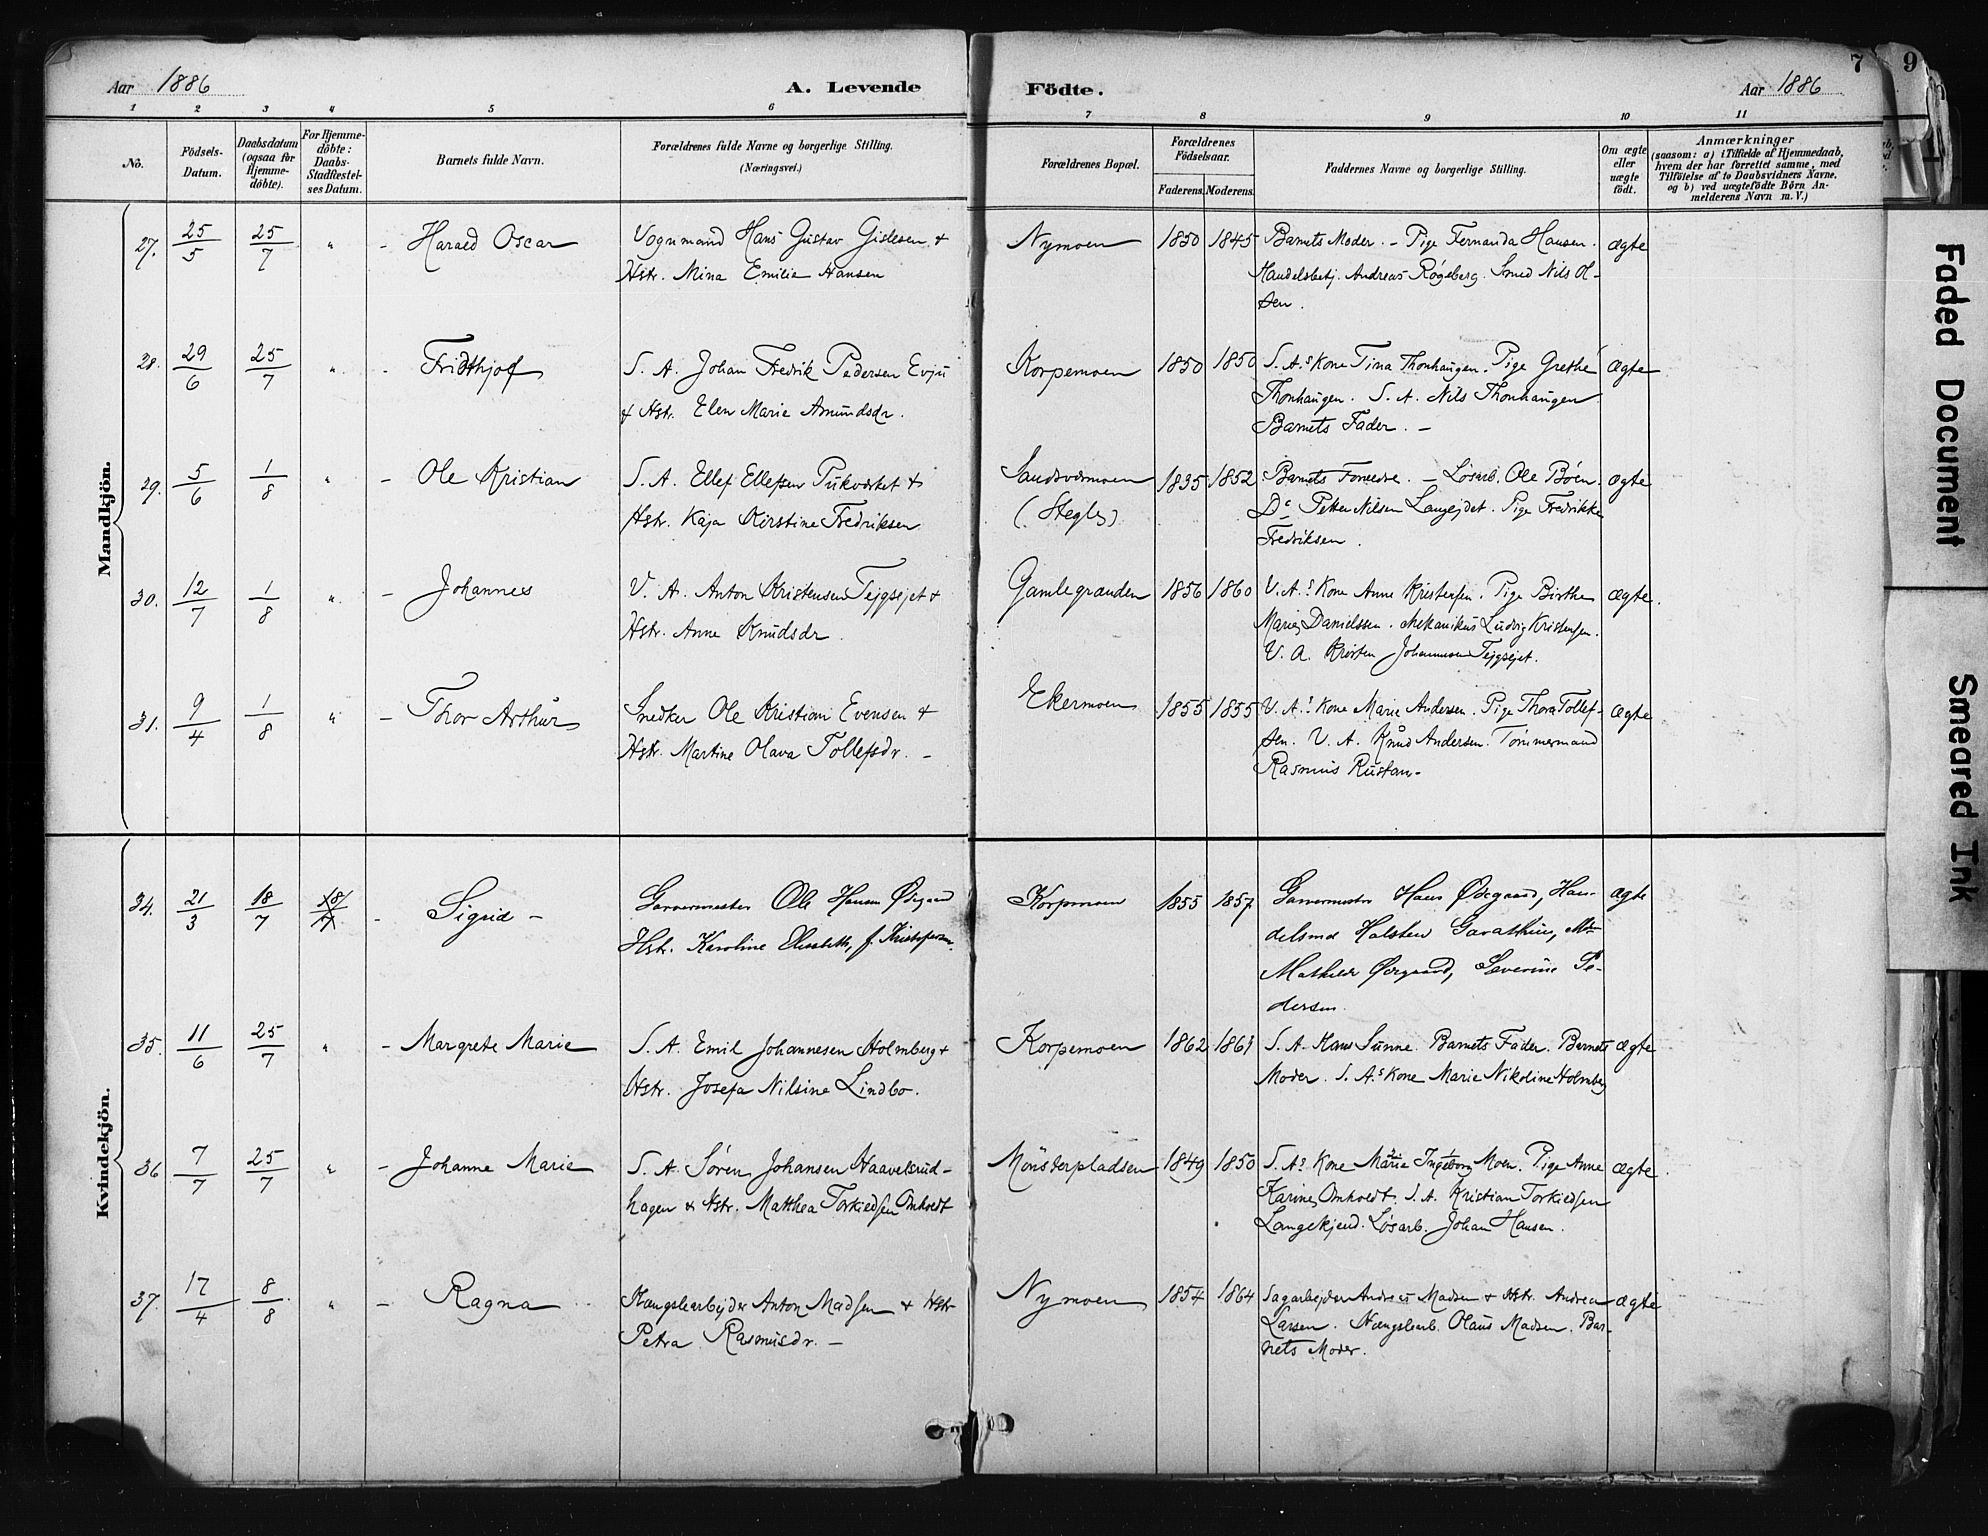 Aar 1886
A. Levende
Födte.
Aar 1886
7
9
1 2 3 4 5 6 7 8 9 10 11
No.
Födsels-
Datum.
Daabsdatum
(ogsaa for
Hjemme-
döbte).
For Hjemme-
döbte:
Daabs-
Stadfestel-
ses Datum.
Barnets fulde Navn.
Forældrenes fulde Navne og borgerlige Stilling.
(Næringsvei.)
Forældrenes Bopæl.
Forældrenes
Födselsaar.
Faderens. Moderens.
Faddernes Navne og borgerlige Stilling.
Om ægte
eller
uægte
födt.
Anmærkninger
(saasom: a) i Tilfælde af Hjemmedaab,
hvem der har forrettet samme, med
Tilföielse af to Daabsvidners Navne,
og b) ved uægtefödte Börn An-
melderens Navn m. V.)
Mandkjön.
27. 25/5 25/7 " - Harald Oscar
Vognmand Hans Gustav Gislesen &
Hstr. Mina Emilie Hansen
Nymoen 1850 1845
Barnets Moder. - Pige Fernanda Hansen.
Handelsbetj. Andreas Røgeberg. Smed Nils Ol-
sen.
ægte
28. 29/6 25/7 " - Fridthjof
S. A. Johan Fredrik Pedersen Evju
& Hstr. Elen Marie Amundsdr.
Korpemoen 1850 1850
S. A.s Kone Tina Thonhaugen. Pige Grethe
Thonhaugen. S. A. Nils Thonhaugen
Barnets Fader. -
ægte
29. 5/6 1/8 " - Ole Kristian
S. A. Ellef Ellefsen Pukverket &
Hstr. Kaja Kirstine Fredriksen
Sandsværmoen
(Stegly)
1835 1852
Barnets Forældre. - Løsarb. Ole Bøen.
Do Petter Nilsen Langejdet. Pige Fredrikke
Fredriksen.
ægte
30. 12/7 1/8 " - Johannes
V. A. Anton Kristensen Tejgsejet &
Hstr. Anne Knudsdr.
Gamlegranden 1856 1860
V. A.s Kone Anne Kristensen. Pige Birthe
Marie Danielssen. Mekanikus Ludvig Kristensen.
V. A. Kristen Johannesen Tejgsejet.
ægte.
31. 9/4 1/8 " - Thor Arthur
Snedker Ole Kristian Evensen &
Hstr. Martine Olava Tollefsdr. -
Ekermoen 1855 1855
V. A.s Kone Marie Andersen. Pige Thora Tollef-
sen. V. A. Knud Andersen. Tømmermand
Rasmus Rustan.
ægte
Kvindekjön.
34. 21/3 18/7 18/7 - Sigrid -
Garvermester Ole Hansen Ødegaard
Hstr. Karoline Elisabeth, f. Kristofersen.
Korpemoen 1855 1857
Garvermester Hans Ødegaard, Han-
delsmd Halsten Garathun,
Mathilde Ødegaard, Severine Pe-
dersen.
ægte
35. 11/6 25/7 " - Margrete Marie
S. A. Emil Johannesen Holmberg &
Hstr. Josefa Nilsine Lindbo.
Korpemoen 1862 1861
S. A. Hans Sunne. Barnets Fader. Barnets
Moder. S. A.s Kone Marie Nikoline Holmberg
ægte
36 7/7 25/7 " - Johanne Marie
S. A. Søren Johansen Haavelsrud-
hagen & Hstr. Matthea Torkildsen Omholdt
Mønsterpladsen 1849 1850
S. A.s Kone Marie Ingeborg Moen. Pige Anne
Karine Omholdt. S. A. Kristian Torkildsen
Langekjend. Løsarb. Johan Hansen.
ægte.
37. 17/4 8/8 " - Ragna
Hængslearbejder Anton Madsen & Hstr
Petra Rasmusdr. -
Nymoen 1854 1864
Sagarbejder Andreas Madsen & Hstr. Andrea
Larsen. Hængslearb. Olaus Madsen. Bar-
nets Moder.
ægte
Faded Document
Smeared Ink